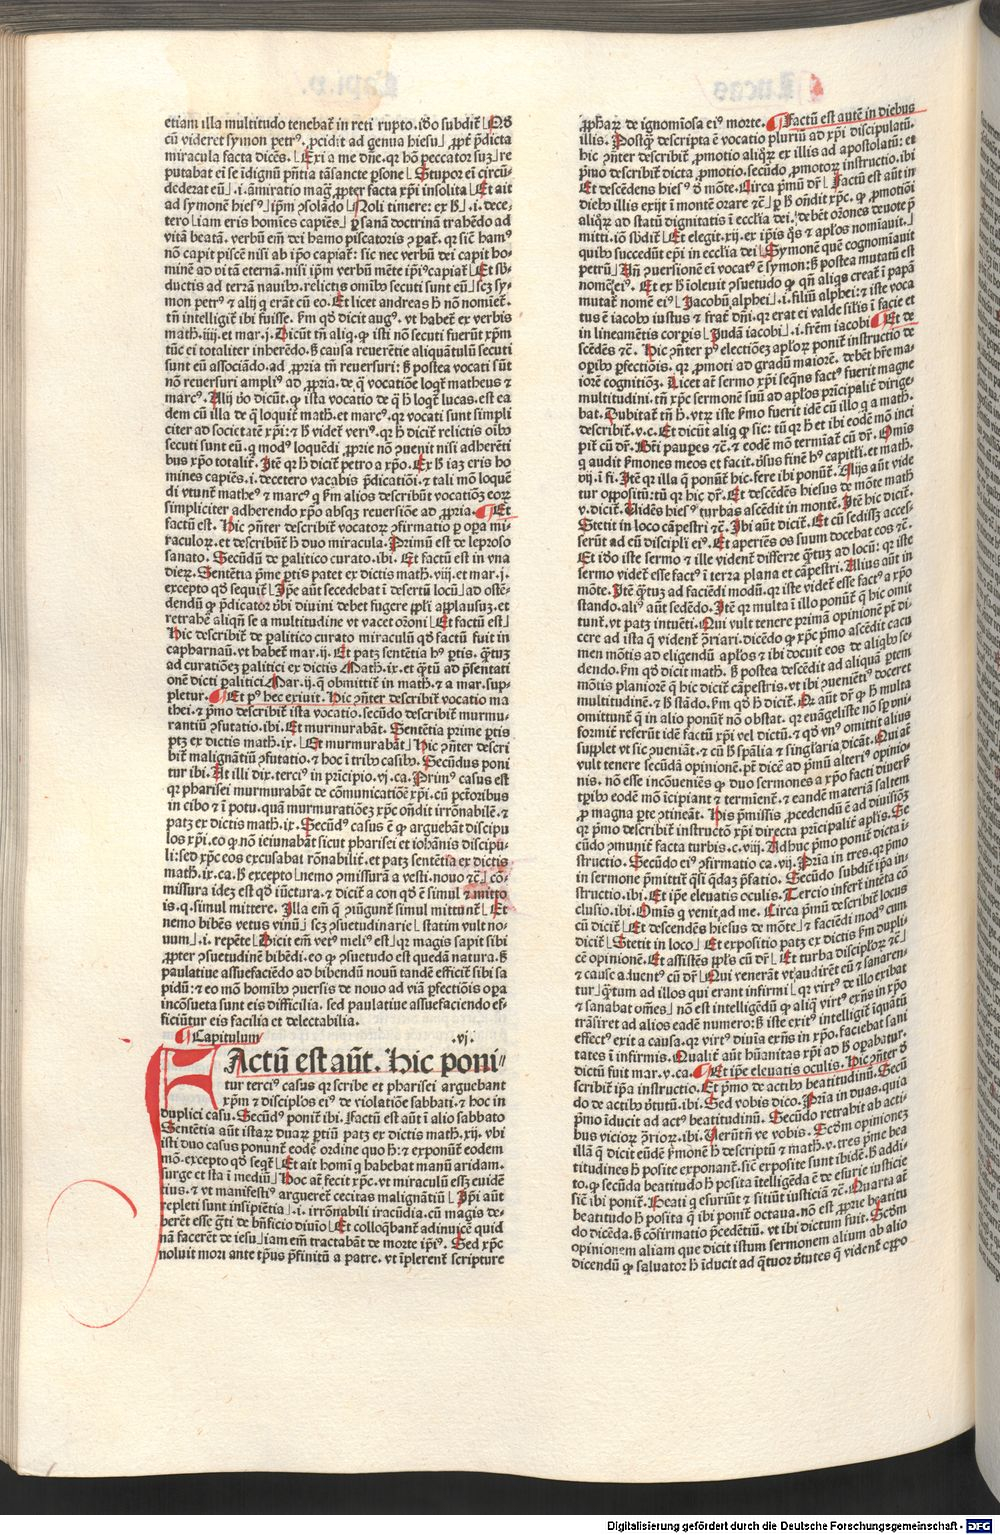 etiam illa multitudo tenebat̄ in reti rupto. iđo subdit̄ Qđ
cū videret symon petrꝰ. ꝓcidit ad genua hiesu ꝓpt̄ p̄dicta
miracula facta dicēs. Exi a me dn̄e. qꝛ hō peccator suꝫ re
putabat ei se īdignū pn̄tia tā sancte ꝑsone Stupor ei circū
dederat eū .i. āmiratio mag̃ ꝓpter facta xp̄i insolita Et ait
ad symonē hiesꝰ ip̄m ↄsolādo Noli timere: ex h̄ .i. dece
tero iam eris homīes capiēs ꝑ sanā doctrinā trahēdo ad
vitā beatā. verbū em̄ dei hamo piscatoris ↄparat̄. qꝛ sic̄ hamꝰ
nō capit piscē nisi ab ip̄o capiat̄: sic nec verbū dei capit ho-
minē ad vitā eternā. nisi ip̄m verbū mēte ip̄iꝰ capiat̄ Et sb̄-
ductis ad terrā nauibꝰ. relictis omībꝰ secuti sunt eū scꝫ sy-
mon petrꝰ ⁊ alij q̄ erāt cū eo. Et licet andreas h̄ nō nomiēt̄.
tn̄ intelligit̄ ibi fuisse. km̄ qđ dicit augꝰ. vt habet̄ ex verbis
math. iiij. et mar. j. Dicūt tn̄ aliq̄. ꝙ isti nō secuti fuerūt xp̄m
tūc ei totaliter inherēdo. s̄ causa reuerētie aliquātulū secuti
sunt eū associādo. ad ꝓpria tn̄ reuersuri: s̄ postea vocati sūt
nō reuersuri ampliꝰ ad ꝓpria. de q̄ vocatiōe loqt̄ matheus ⁊
marcꝰ. Alij v̄o dicūt. ꝙ ista vocatio de q̄ h̄ loqt̄ lucas. est ea
dem cū illa de q̄ loquit̄ math. et marcꝰ. qꝛ vocati sunt simpli
citer ad societatē xp̄i: ⁊ h̄ videt̄ veriꝰ. qꝛ h̄ dicit̄ relictis oībꝰ
secuti sunt eū. q̄ modꝰ loquēdi ꝓprie nō ↄuenit nisi adherēti
bus xp̄o totalit̄. Itē qꝛ h̄ dicit̄ petro a xp̄o. Ex h̄ iaꝫ eris ho
mines capiēs. i. decetero vacabis p̄dicatiōi. ⁊ tali mō loquē
di vtunt̄ matheꝰ ⁊ marcꝰ q̄ km̄ alios describūt vocatiōꝫ eoꝝ
simpliciter adherendo xp̄o absqꝫ reuersiōe ad ꝓpria. Et
factū est. Hic ↄn̄ter describit̄ vocatoꝝ ↄfirmatio ꝑ oꝑa mi-
raculoꝝ. et describūt̄ h̄ duo miracula. Primū est de leproso
sanato. Secūdū de palitico curato. ibi. Et factū est in vna
dieꝝ. Sentētia p̄me ꝑtis patet ex dictis math. viij. et mar. j.
excepto qđ sequit̄ Ip̄e aūt secedebat ī desertū locū ad ostē-
dendū ꝙ p̄dicator v̄bi diuini debet fugere ꝓp̄li applausuꝫ. et
retrahē aliqn̄ se a multitudine vt vacet oꝛōni Et factū est
Hic describit̄ de palitico curato miraculū qđ factū fuit in
capharnaū. vt habet̄ mar. ij. Et patꝫ sentētia hꝰ ꝑtis. q̄tuꝫ
ad curatiōeꝫ palitici ex dictis Math. ix. et q̄tū ad p̄sentati
onē dicti palitici Mar. ij. q̄ obmittit̄ in math. ⁊ a mar. sup-
pletur. Et pꝰ hec exiuit. Hic ↄn̄ter describit̄ vocatio ma
thei. ⁊ p̄mo describit̄ ista vocatio. secūdo describit̄ murmu-
rantiū ↄfutatio. ibi. Et murmurabāt. Sententia prime ꝑtis
ptꝫ ex dictis math. ix. Et murmurabāt Hic ↄn̄ter descri
bit̄ malignātiū ↄfutatio. ⁊ hoc ī tribꝰ casibꝰ. Secūdus poni
tur ibi. At illi dix̄. terciꝰ in pricipio. vj. ca. Primꝰ casus est
qꝛ pharisei murmurabāt de cōmunicatiōe xp̄i. cū pctōribus
in cibo ⁊ ī potu. quā murmuratiōeꝫ xp̄c on̄dit irrōnabilē. ⁊
patꝫ ex dictis math. ix. Secūdꝰ casus ē ꝙ arguebāt discipu
los xp̄i. eo ꝙ nō ieiunabāt sicut pharisei et iohānis discipu-
li: sed xp̄c eos excusabat rōnabilit̄. et patꝫ sentētia ex dictis
math. ix. ca. h̄ excepto nemo ↄmissurā a vesti. nouo ⁊c̄ cō-
missura ideꝫ est qđ iūctura. ⁊ dicit̄ a con qđ ē simul ⁊ mitto
is. q. simul mittere. Illa em̄ q̄ ↄiūgunt̄ simul mittunt̄ Et
nemo bibēs vetus vinū scꝫ ↄsuetudinarie statim vult no-
uum .i. repēte Dicit em̄ vetꝰ meliꝰ est qꝛ magis sapit sibi
ꝓpter ↄsuetudinē bibēdi. eo ꝙ ↄsuetudo est quedā natura. s̄
paulatiue assuefaciēdo ad bibendū nouū tandē efficit̄ sibi sa
pidū: ⁊ eo mō homībꝰ ↄuersis de nouo ad viā ꝑfectiōis oꝑa
incōsueta sunt eis difficilia. sed paulatiue assuefaciendo ef-
ficiūtur eis facilia et delectabilia.
Capitulum .vj.
FActū est aūt. Hic poni-
tur terciꝰ casus qꝛ scribe et pharisei arguebant
xp̄m ⁊ disciplos eiꝰ de violatiōe sabbati. ⁊ hoc in
duplici casu. Secūdꝰ ponit̄ ibi. Factū est aūt ī alio sabbato
Sentētia aūt istaꝝ duaꝝ ꝑtiū patꝫ ex dictis math. xij. vbi
isti duo casus ponunt̄ eodē ordine quo h̄: ⁊ exponūt̄ eodem
mō. excepto qđ seqt̄ Et ait homī q̄ habebat manū aridam.
surge et sta ī mediū Hoc at̄ fecit xp̄c. vt miraculū eēt euidē
tius. ⁊ vt manifestiꝰ argueret̄ cecitas malignātiū Ip̄i aūt
repleti sunt insipiētia .i. irrōnabili iracūdia. cū magis de-
berēt esse g̃ti de bn̄ficio diuīo Et colloqbant̄ adinuicē quid
nā facerēt de iesu iam em̄ tractabāt de morte ip̄iꝰ. Sed xp̄c
noluit mori ante tp̄us p̄finitū a patre. vt īplerent̄ scripture
ꝓphaꝝ de ignomīosa eiꝰ morte. Factū est autē in diebus
illis. Postq̄ descripta ē vocatio pluriū ad xp̄i discipulatū.
hic ↄn̄ter describit̄ ꝓmotio aliqꝝ ex illis ad apostolatū: et
p̄mo describit̄ dicta ꝓmotio. secūdo ꝓmotoꝝ instructio. ibi
Et descēdens hiesꝰ đ mōte. Circa p̄mū dr̄ Factū est aūt in
diebꝰ illis exijt ī montē orare ⁊c̄ ꝑ h̄ on̄dit xp̄c. ꝙ ꝓmotiōi
aliqꝝ ad statū dignitatis ī ecclīa dei. debēt oꝛōnes deuote p̄
mitti. iō sb̄dit̄ Et elegit. xij. ex ip̄is q̄s ⁊ apl̄os nomīauit.
quibꝰ succedūt ep̄i in ecclīa dei Symonē quē cognomiauit
petrū An̄ ↄuersionē ei vocatꝰ ē symon: s̄ postea mutatū est
nomē eiꝰ. Et ex h̄ īoleuit ↄsuetudo ꝙ qn̄ aliqs creat̄ ī papā
mutat̄ nomē eiꝰ Jacobū alphei .i. filiū alphei: ⁊ iste voca
tus ē iacobꝰ iustus ⁊ frat̄ dn̄i. qꝛ erat ei valde silis ī facie et
in lineamētis corꝑis Judā iacobi .i. frēm iacobi Et de
scēdēs ⁊c̄. Hic ↄn̄ter pꝰ electiōeꝫ apl̄oꝝ ponit̄ instructio de
opibꝰ ꝑfectiōis. qꝛ ꝓmoti ad gradū maiorē. debēt hr̄e ma-
iorē cognitiōꝫ. Licet at̄ sermo xp̄i seqn̄s factꝰ fuerit magne
multitudini. tn̄ xp̄c sermonē suū ad apl̄os pricipalit̄ dirige-
bat. Dubitat̄ tn̄ h̄. vtꝝ iste s̄mo fuerit idē cū illo q̄ a math.
describit̄. v. c. Et dicūt aliq̄ ꝙ sic: tū qꝛ h̄ et ibi eodē mō inci
pit̄ cū dr̄. Bt̄i pauꝑes ⁊c̄. ⁊ eodē mō termīat̄ cū dr̄. Omīs
q̄ audit s̄mones meos et facit. v̄sus finē hꝰ capitl̄i. et math.
vij. ī fi. Itē qꝛ illa q̄ ponūt̄ hic. fere ibi ponūt̄. Alijs aūt vide
tur oppositū: tū qꝛ hic dr̄. Et descēdēs hiesus de mōte math
v. dicit̄. Vidēs hiesꝰ turbas ascēdit in montē. Itē hic dicit̄.
Stetit in loco cāpestri ⁊c̄. Ibi aūt dicit̄. Et cū sedissꝫ acces-
serūt ad eū discipl̄i eiꝰ. Et aperiēs os suum docebat eos ⁊c̄.
Et iđo iste sermo ⁊ ille vident̄ differre q̄tuꝫ ad locū: qꝛ iste
sermo videt̄ esse factꝰ ī terra plana et cāpestri. Alius aūt in
mōte. Itē q̄tuꝫ ad faciēdi modū. qꝛ iste videt̄ esse factꝰ a xp̄o
stando. aliꝰ aūt sedēdo. Itē qꝛ multa ī illo ponūt̄ q̄ hic omit
tunt̄. vt patꝫ intuēti. Qui vult tenere primā opinionē pt̄ di-
cere ad ista q̄ vident̄ ↄ̄riari. dicēdo ꝙ xp̄c p̄mo ascēdit cacu
men mōtis ad eligendū apl̄os ⁊ ibi docuit eos de aliqbꝰ se-
dendo. km̄ qđ dicit math. s̄ postea descēdit ad aliquā ꝑtem
mōtis planiorē q̄ hic dicit̄ cāpestris. vt ibi ↄueniētiꝰ doceret
multitudinē. ⁊ h̄ stādo. km̄ qđ h̄ dicit̄. Qꝛ aūt dr̄ ꝙ h̄ multa
omittunt̄ q̄ in alio ponūt̄ nō obstat. qꝛ euāgeliste nō sꝑ vni-
formit̄ referūt idē factū xp̄i vel dictū. ⁊ qđ vnꝰ omittit alius
supplet vt sic ↄueniāt. ⁊ cū h̄ sp̄alia ⁊ singl̄aria dicāt. Qui at̄
vult tenere secūdā opinionē. pt̄ dicē ad p̄mū alteriꝰ opinio-
nis. nō esse incōueniēs ꝙ duo sermones a xp̄o facti diuersꝭ
tꝑibꝰ eodē mō īcipiant ⁊ termient̄. ⁊ eandē materiā saltem
ꝓ magna ꝑte ↄtineāt. His p̄missis ꝓcedendū ē ad diuisiōꝫ
qꝛ p̄mo describit̄ instructō xp̄i directa pricipalit̄ apl̄is. Se
cūdo ↄmunit̄ facta turbis. c. viij. Adhuc p̄mo ponit̄ dicta i-
structio. Secūdo ei ↄfirmatio ca. vij. Pria in tres. qꝛ p̄mo
in sermone p̄mittit̄ q̄si q̄daꝫ p̄fatio. Secūdo subdit̄ ip̄a in-
structio. ibi. Et ip̄e eleuatis oculis. Tercio infert̄ intēta cō
clusio. ibi. Omīs q̄ venit ad me. Circa p̄mū describit̄ locus
cū dicit̄ Et descendēs hiesus đ mōte ⁊ faciēdi modꝰ cum
dicit̄ Stetit in loco Et expositio patꝫ ex dictis km̄ dupli
cē opinionē. Et assistēs ꝓp̄ls cū dr̄ Et turba disciploꝝ ⁊c̄
⁊ cause aduentꝰ cū dr̄ Qui venerāt vt audirēt eū ⁊ sanaren-
tur q̄tum ad illos qui erant infirmi qꝛ virtꝰ de illo exibat
⁊ sanabat om̄es nō est intelligēdū ꝙ aliq̄ virtꝰ exn̄s in xp̄o
trāsiret ad alios eadē numero: s̄ iste exitꝰ intelligit̄ īquātū
effectꝰ exit a causa. qꝛ virtꝰ diuīa exn̄s in xp̄o. faciebat sani
tates ī infirmis. Qualit̄ aūt hūanitas xp̄i ad h̄ oꝑabatur.
dictū fuit mar. v. ca. Et ip̄e eleuatis oculis. Hic ↄn̄ter đ
scribit̄ ip̄a instructio. Et p̄mo de actibꝰ beatitudinū. Secū
do de actibꝰ v̄tutū. ibi. Sed vobis dico. Pria in duas. quia
p̄mo īducit ad actꝰ beatitudinū. Secūdo retrahit ab acti-
bus vicioꝝ ↄ̄rioꝝ. ibi. Verūtn̄ ve vobis. Scđm opinionez
illā q̄ dicit eūdē s̄monē h̄ descriptū ⁊ math. v. tres p̄me bea
titudines h̄ posite exponant̄. sic̄ exposite sunt ibidē. s̄ addi-
to. ꝙ secūda beatitudo h̄ posita ītelligēda ē de esurie iusticie
sic̄ ibi ponit̄. Beati q̄ esuriūt ⁊ sitiūt iusticiā ⁊c̄. Quarta at̄
beatitudo h̄ posita q̄ ibi ponit̄ octaua. nō est ꝓprie beatitu
do dicēda. s̄ cōfirmatio p̄cedētiū. vt ibi dictum fuit. Scđm
opinionem aliam que dicit istum sermonem alium ab alio
dicendū ꝙ saluator h̄ īducit ad q̄tuor v̄tutes q̄ vident̄ oppo
Digitalisierung gefördert durch die Deutsche Forschungsgemeinschaft - DFG